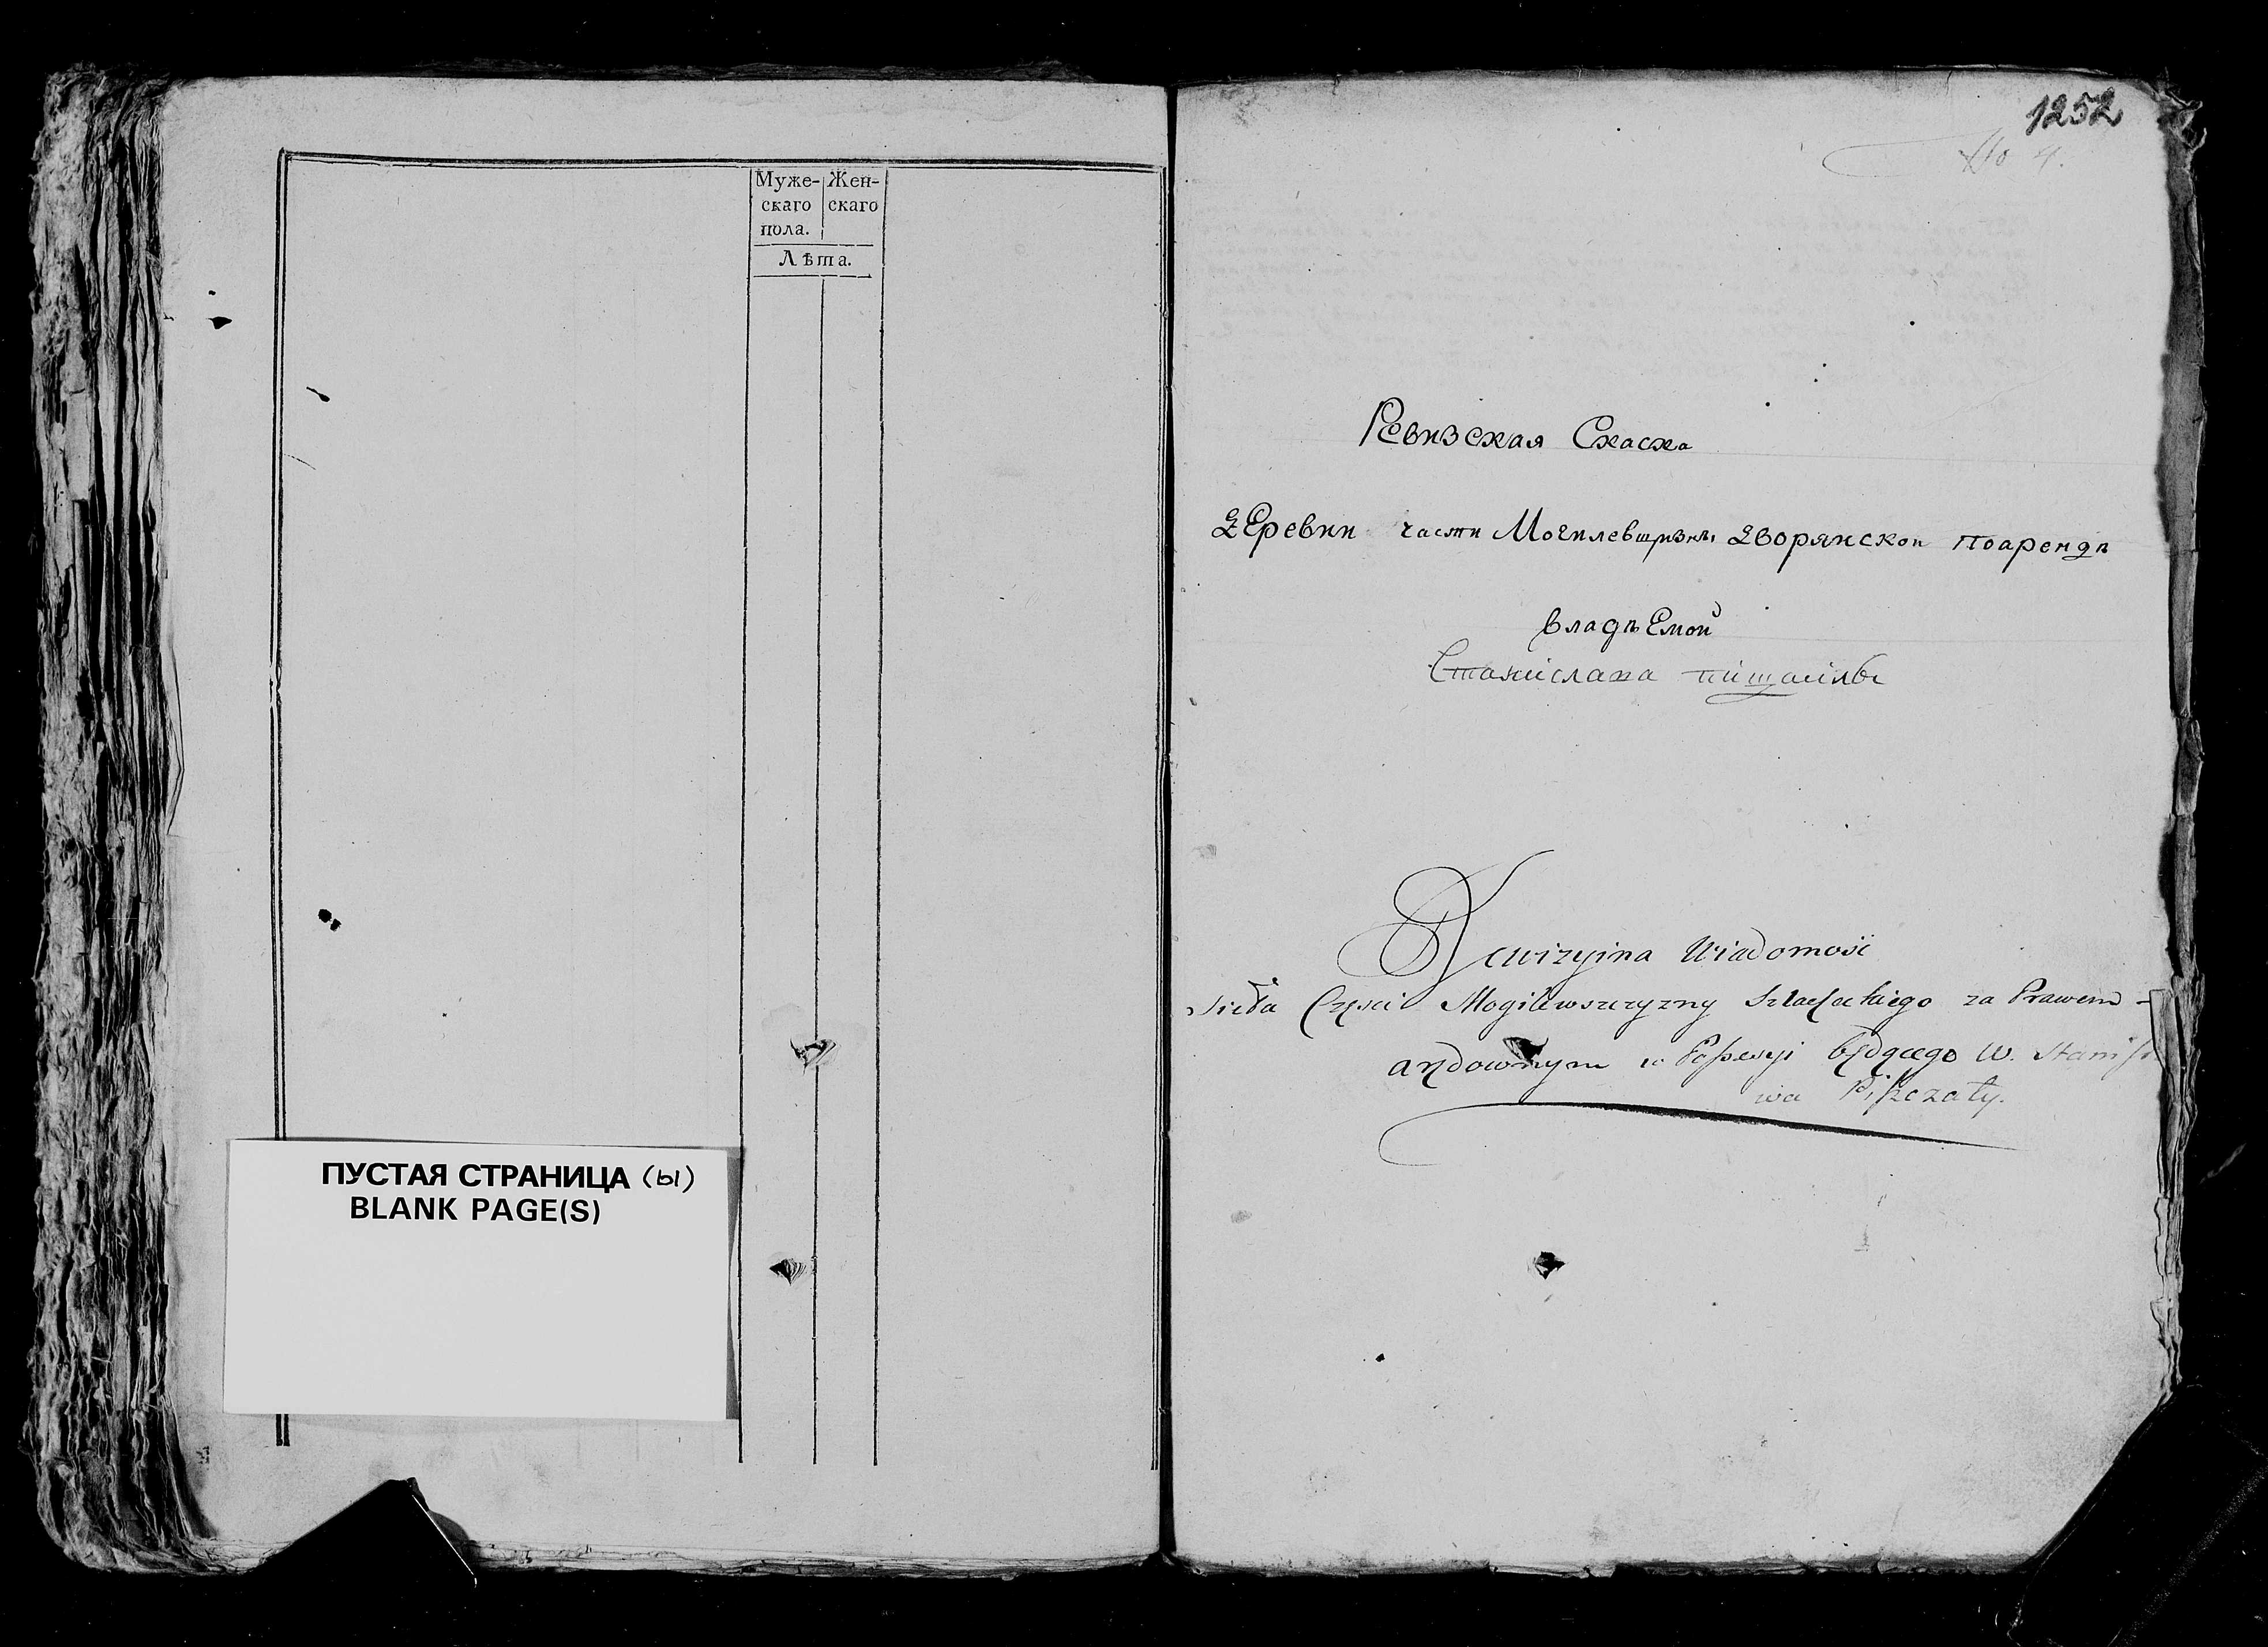 Муже- Жен-
скаго скаго
пола.
Лѣта.
ПУСТАЯ СТРАНИЦА (ы)
BLANK PAGE(S)
1252
No 4.
Ревизская Скаска
деревни части Могилевщизнъ дворянскои поарендѣ
владѣемой
Станислава
Rewizyjna Wiadomość
Sioła Części Mogilewszczyzny Szlacheckiego za Prawem
arędownym w Possesyi będącego W. Stanisła
wa Piszczały.